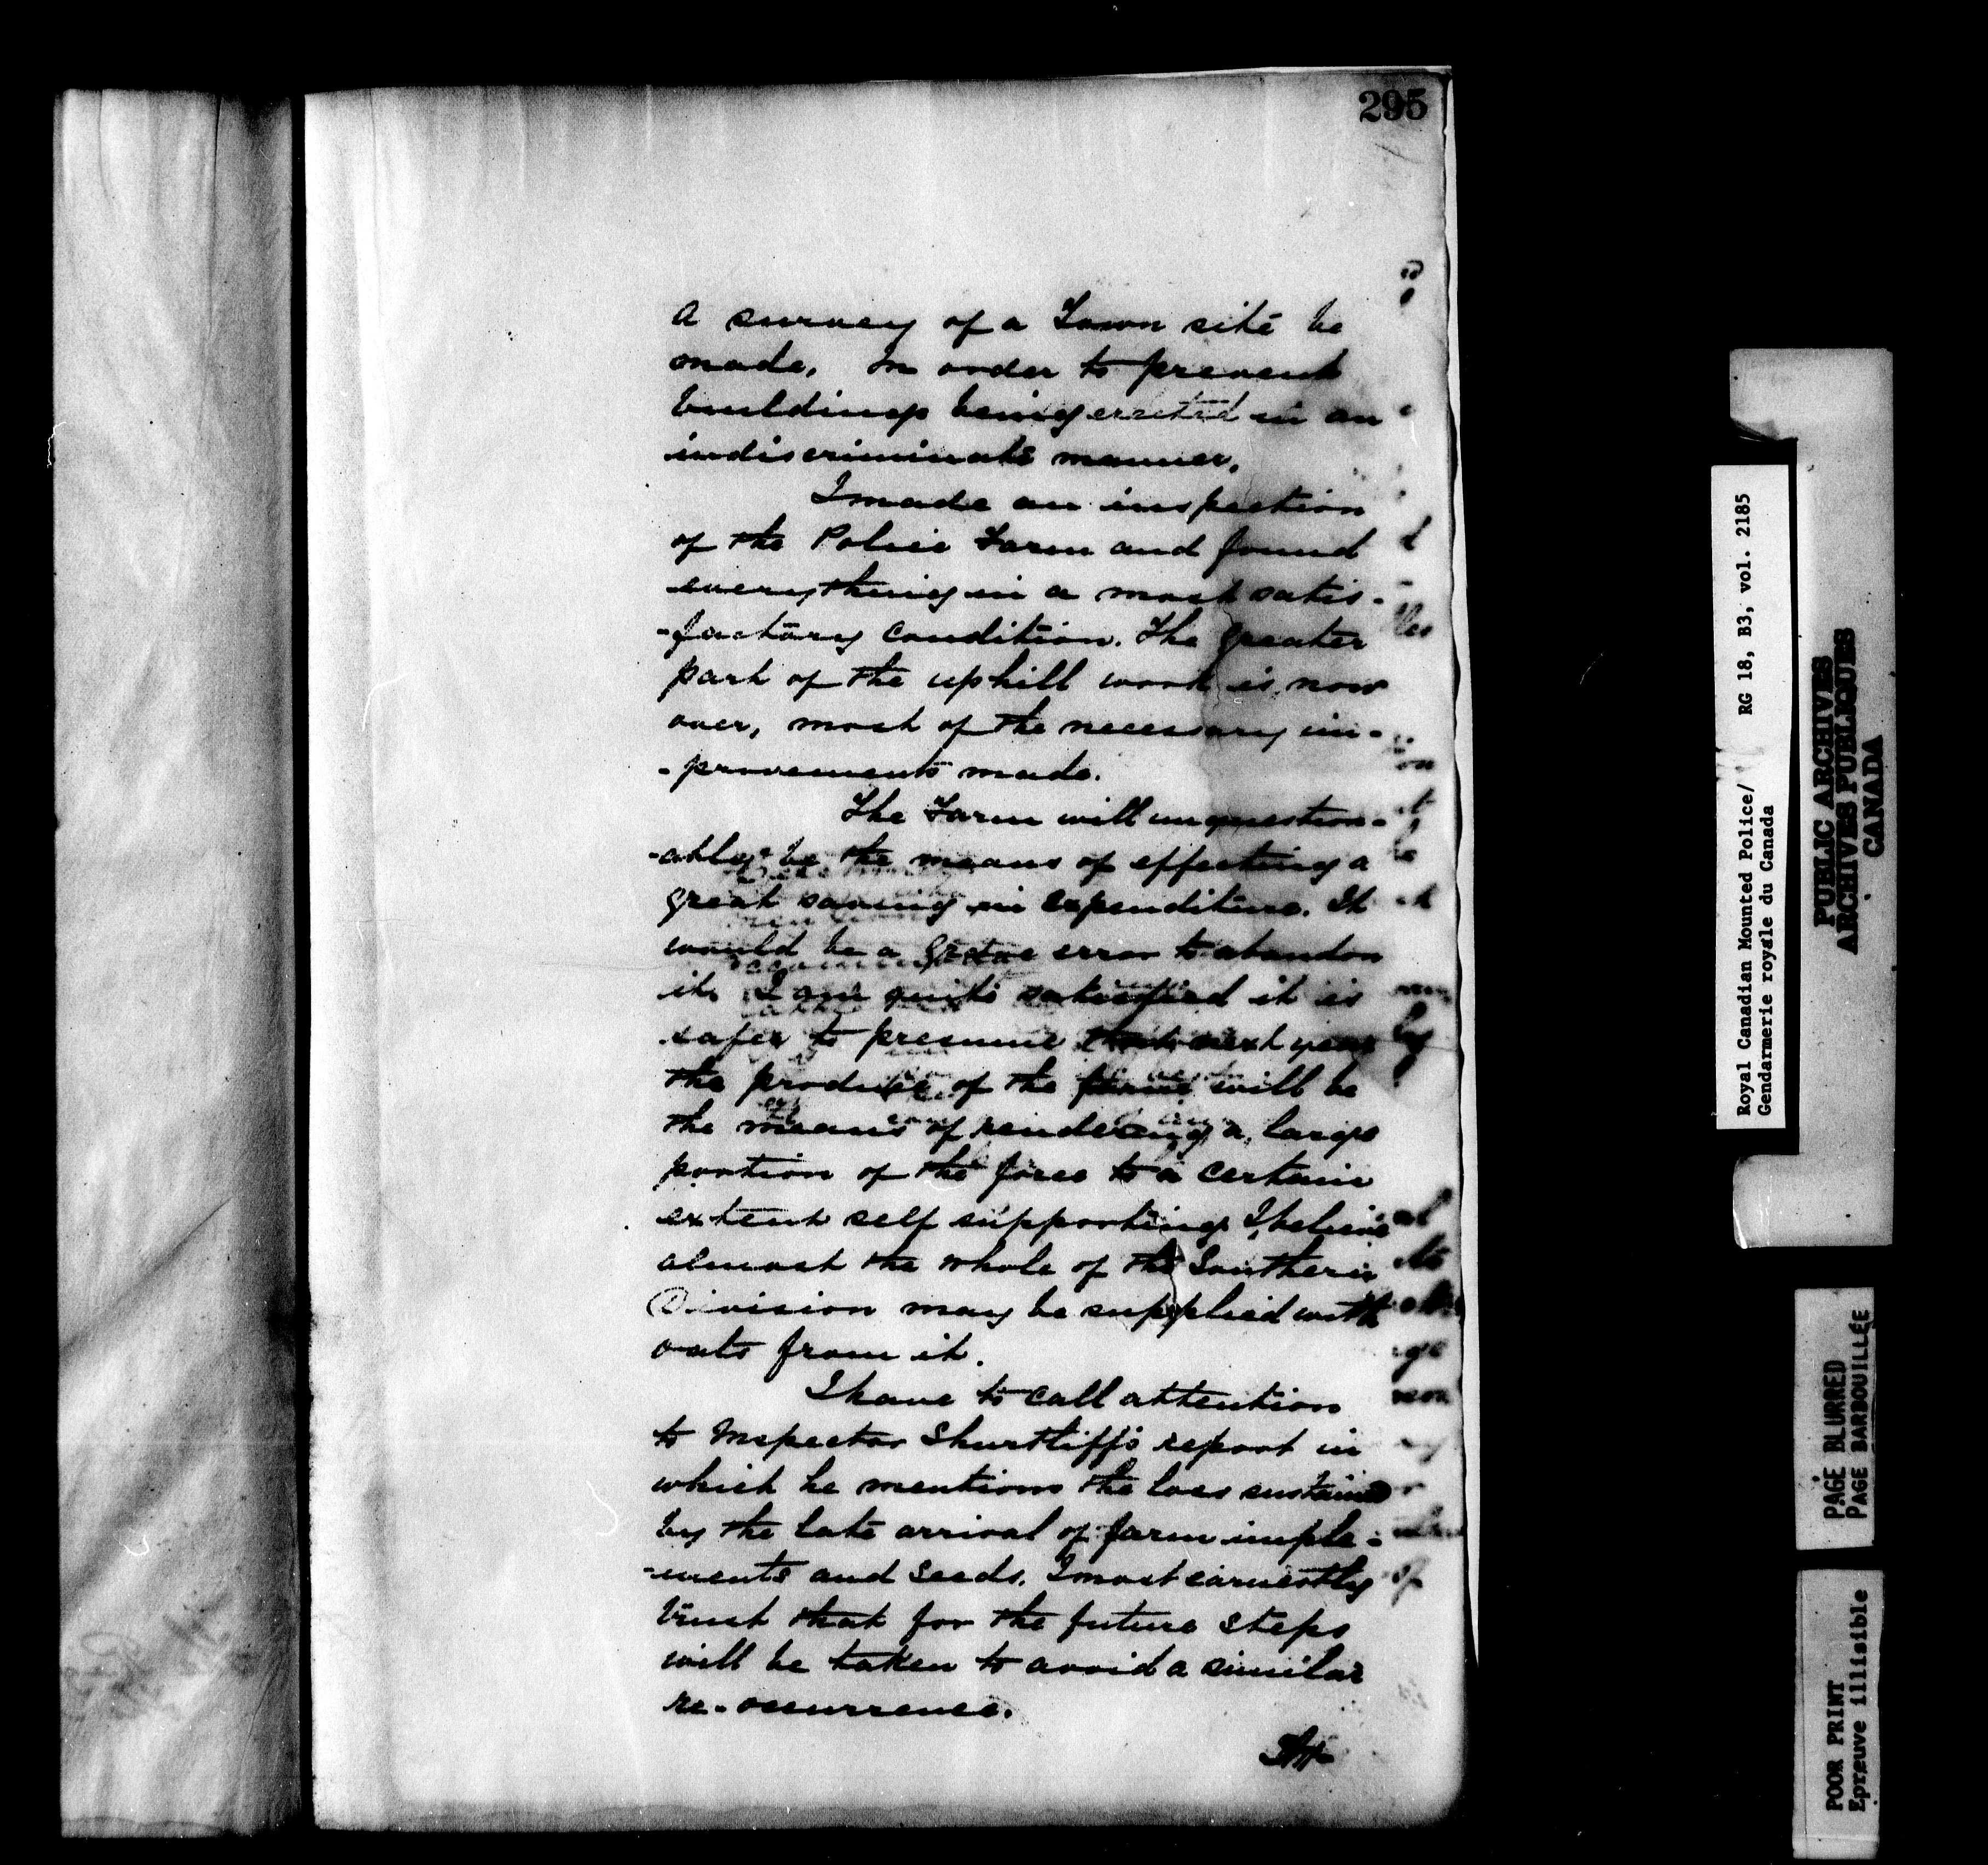 295
a survey of a Town site be
made, in order to prevent
buildings being erected in an
indiscriminate manner.
I made an inspection
of the Police Farm and found
everything in a most satis-
-factory condition. The greater
part of the uphill work is now
over, most of the necessary im-
-provements made.
The Farm will unquestion-
-ably be the means of effecting a
great saving in expenditure. It
would be a grave error to abandon
it. I am quite satisfied it is
safer to presume that next year
the produce of the farm will be
the means of rendering a large
portion of the force to a certain
extent self supporting. I believe
almost the whole of the Southern
Division may be supplied with
oats from it.
I have to call attention
to Inspector Shurtliff's report in
which he mentions the loss sustained
by the late arrival of farm imple-
-ments and seeds. I most earnestly
trust that for the future steps
will be taken to avoid a similar
re-occurrence.
At
Royal Canadian Mounted Police/ RG 18, B3, vol. 2185
Gendarmerie royale du Canada
PUBLIC ARCHIVES
ARCHIVES PUBLIQUES
CANADA
PAGE BLURRED
PAGE BARBOUILLÉE
POOR PRINT
Epreuve illisible